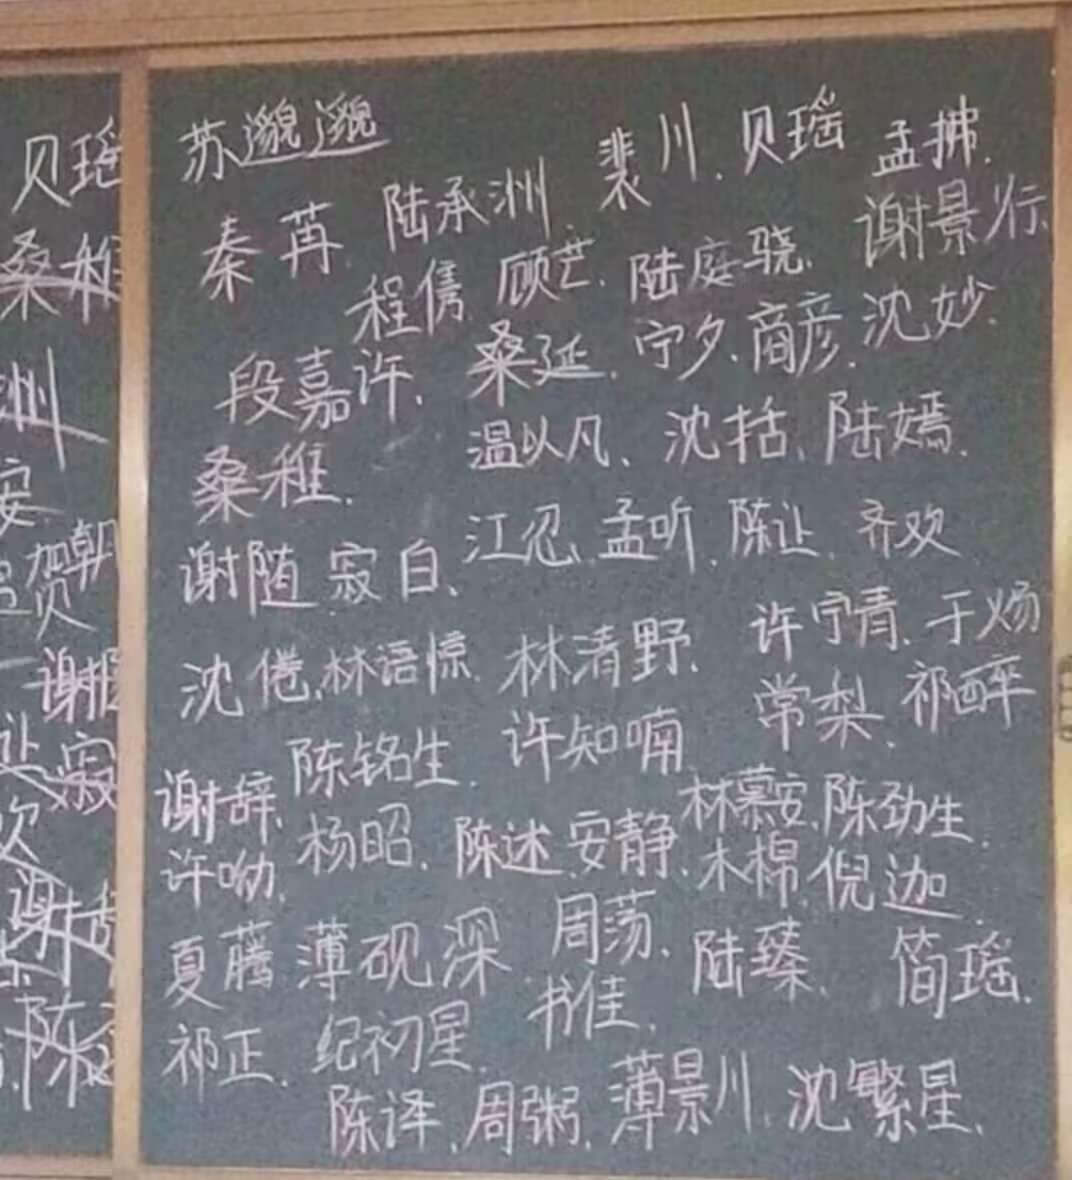 贝瑶
桑稚
洲
安
贺朝
谢
让 寂
次
谢
陈
苏邈邈
裴川、贝瑶 孟拂、
秦苒、陆承洲、
谢景行、
程隽 顾芒、陆庭骁、
段嘉许、桑延、宁夕、商彦、沈妙、
桑稚、温以凡、沈括、陆嫣、
谢随 寂白、江忍、孟听、陈让、齐欢
沈倦、林语惊、林清野、许宁青、于炀
陈铭生、许知喃 常梨、祁醉
谢辞、杨昭、陈述、安静、林慕安、陈劲生、
许呦、木棉、倪迦、
夏藤 薄砚深 周荡、陆臻、简瑶、
祁正、纪初星、书佳、
陈译、周粥、薄景川、沈繁星、